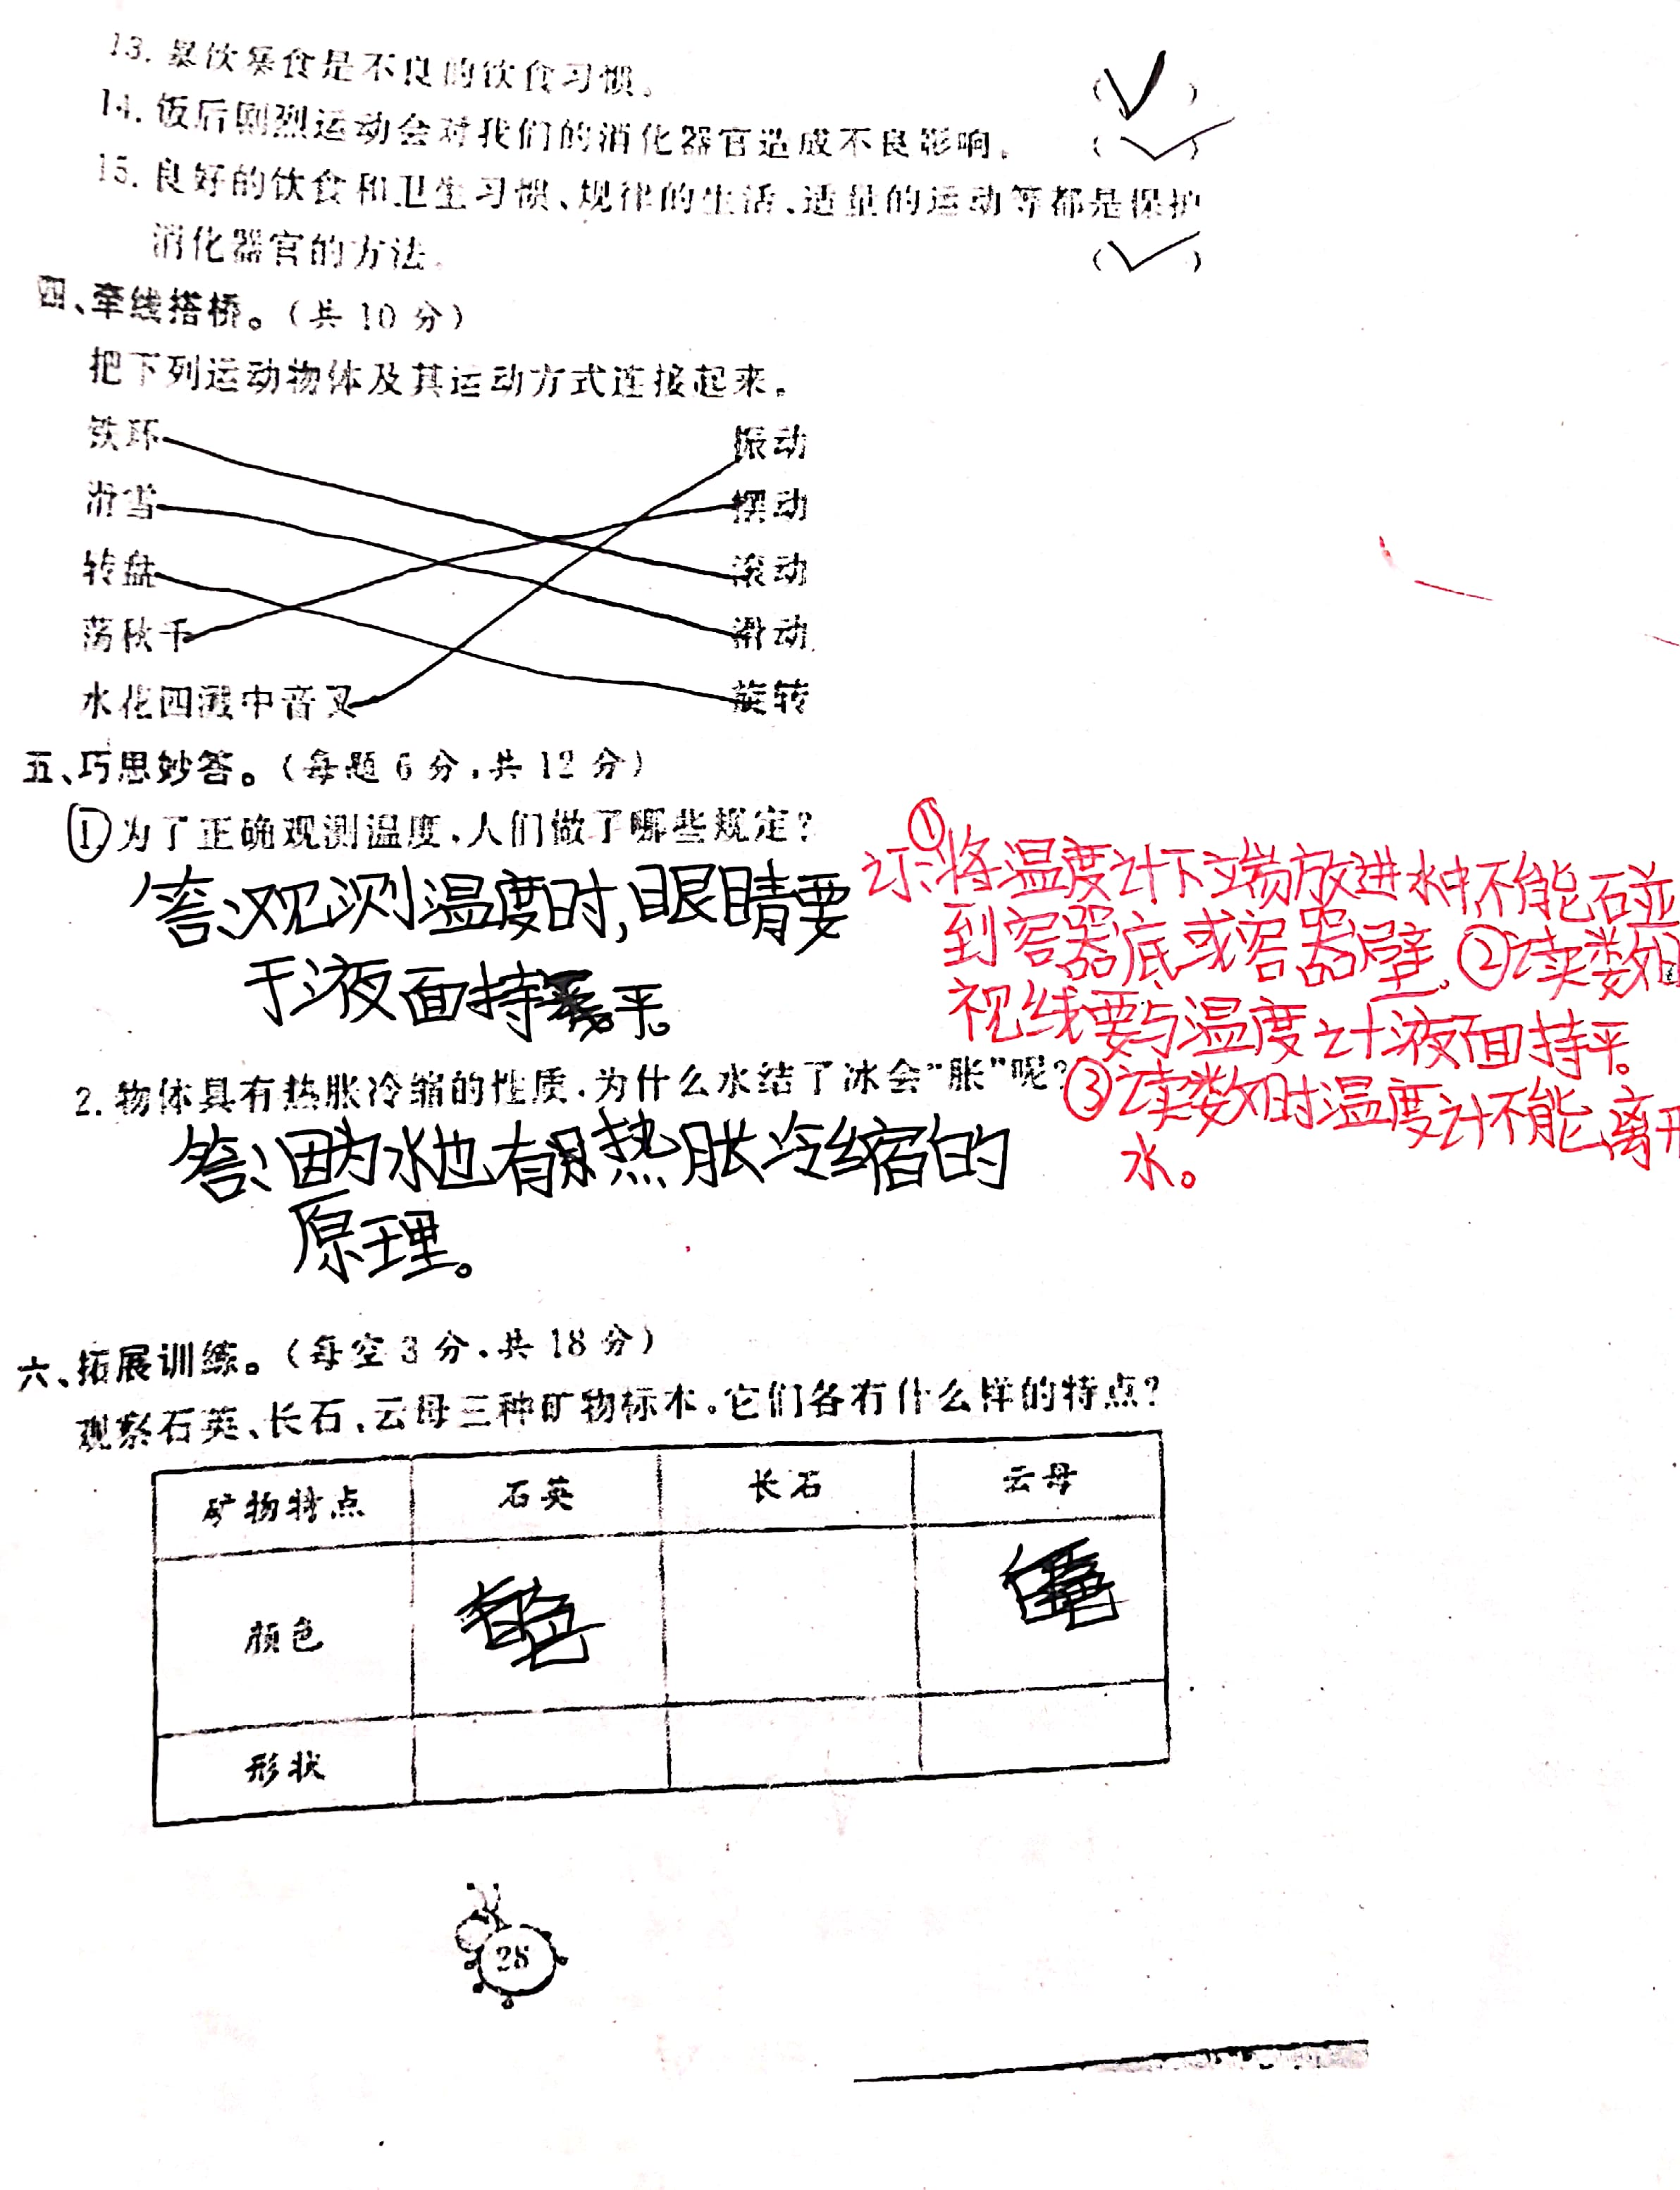 13. 暴饮暴食是不良的饮食习惯。 (✓)
14. 饭后剧烈运动会对我们的消化器官造成不良影响。 (✓)
15. 良好的饮食和卫生习惯、规律的生活、适量的运动等都是保护
消化器官的方法。 (✓)
四、牵线搭桥。(共10分)
把下列运动物体及其运动方式连接起来。
铁环 振动
滑雪 摆动
转盘 滚动
荡秋千 滑动
水花四溅中音叉 旋转
五、巧思妙答。(每题6分,共12分)
① 为了正确观测温度,人们做了哪些规定?
答:观测温度时,眼睛要
于液面持平。
订:①将温度计下端放进水中,不能碰
到容器底或容器壁。②读数时
视线要与温度计液面持平。
③读数时温度计不能离开
水。
2. 物体具有热胀冷缩的性质,为什么水结了冰会“胀”呢?
答:因为水也有热胀冷缩的
原理。
六、拓展训练。(每空3分,共18分)
观察石英、长石、云母三种矿物标本。它们各有什么样的特点?
矿物特点 石英 长石 云母
颜色
形状
28